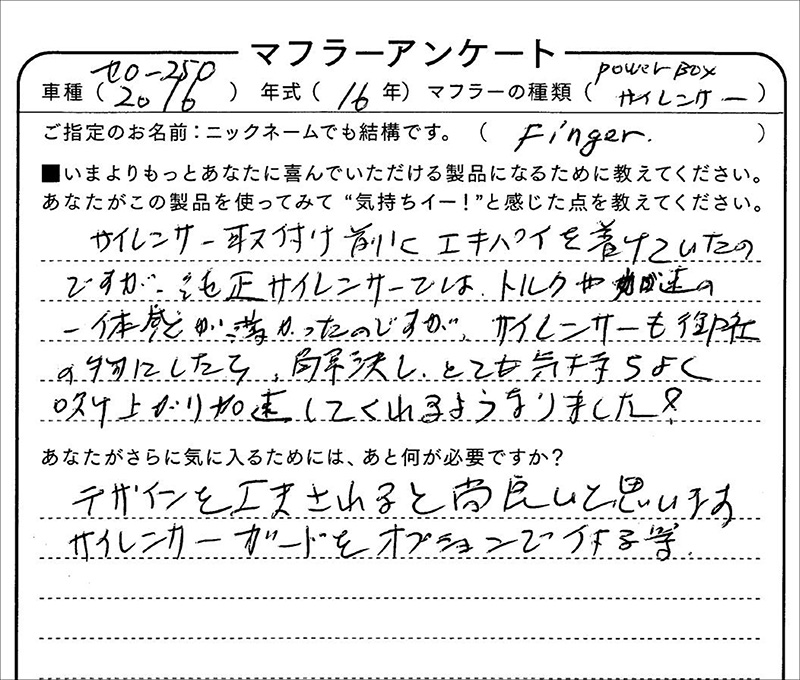 マフラーアンケート
車種（ セロー250 2016 ） 年式（ 16 年）マフラーの種類（ power BOX サイレンサー ）
ご指定のお名前：ニックネームでも結構です。（ Finger. ）
■いまよりもっとあなたに喜んでいただける製品になるために教えてください。
あなたがこの製品を使ってみて“気持ちイー！”と感じた点を教えてください。
サイレンサー取付け前にエキパイを着けていたの
ですが、純正サイレンサーでは、トルクや加速の
一体感が薄かったのですが、サイレンサーも御社
の物にしたら、解決し、とても気持ちよく
吹け上がり加速してくれるようなりました！
あなたがさらに気に入るためには、あと何が必要ですか？
デザインを工夫されると尚良いと思います
サイレンサーガードをオプションで付る等。